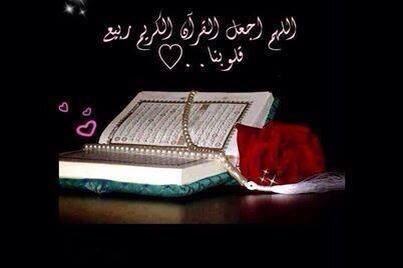 اللهم اجعل القرآن الكريم ربيع
قلوبنا . . ♡